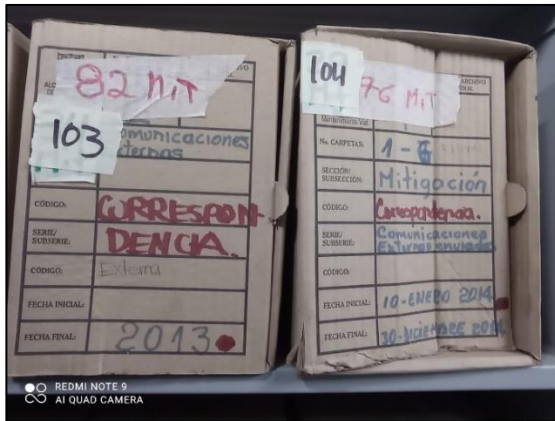 82 MIT
103
Comunicaciones
Externas
CÓDIGO: CORRESPON-
SERIE/
SUBSERIE: DENCIA.
CÓDIGO: Externa
FECHA INICIAL:
FECHA FINAL: 2013
104
76 MIT
ARCHIVO
No. CARPETAS: 1 - 6
SECCIÓN/
SUBSECCIÓN: Mitigación
CÓDIGO: Correspondencia.
SERIE/
SUBSERIE: Comunicaciones
Externas enviadas
CÓDIGO:
FECHA INICIAL: 10-ENERO 2014
FECHA FINAL: 30-DICIEMBRE
REDMI NOTE 9
AI QUAD CAMERA